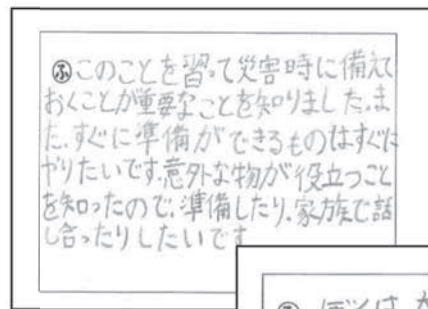 ㋫このことを習って災害時に備えて
おくことが重要なことを知りました。ま
た、すぐに準備ができるものはすぐに
やりたいです。意外な物が役立つこと
を知ったので、準備したり、家族で話
し合ったりしたいです
ぼくは